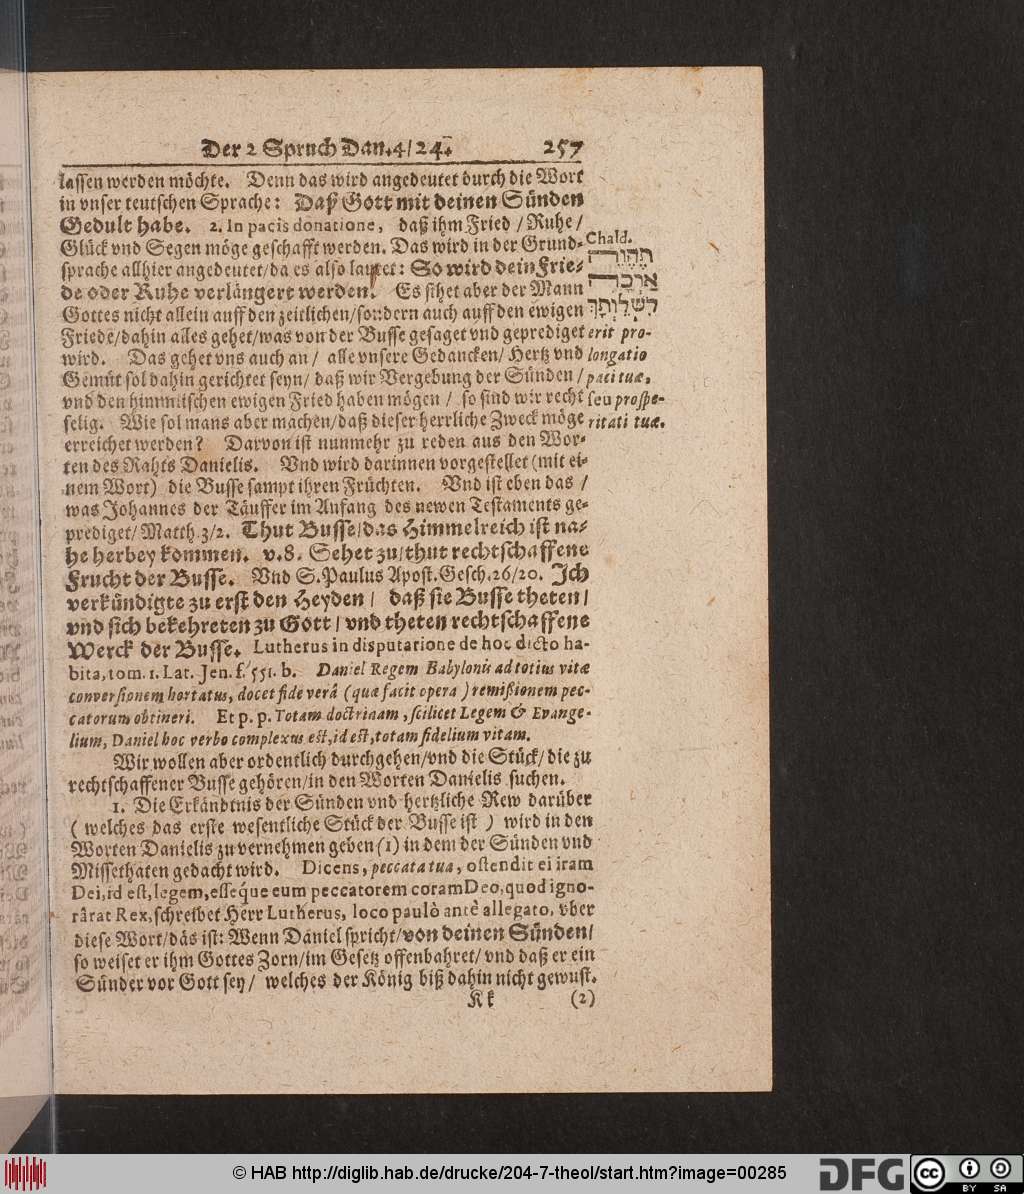 Der 2 Spruch Dan. 4/24. 257
lassen werden möchte. Denn das wird angedeutet durch die Wort
in vnser teutschen Sprache: Daß Gott mit deinen Sünden
Gedult habe. 2. In pacis donatione, daß ihm Fried / Ruhe /
Glück vnd Segen möge geschafft werden. Das wird in der Grund-
sprache allhier angedeutet/da es also lautet: So wird dein Frie-
de oder Ruhe verlängert werden. Es sihet aber der Mann
Gottes nicht allein auff den zeitlichen/sondern auch auff den ewigen
Friede/dahin alles gehet/was von der Busse gesaget vnd geprediget
wird. Das gehet vns auch an / alle vnsere Gedancken/ Hertz vnd
Gemüt sol dahin gerichtet seyn/ daß wir Vergebung der Sünden /
vnd den himmlischen ewigen Fried haben mögen / so sind wir recht
selig. Wie sol mans aber machen/daß dieser herrliche Zweck möge
erreichet werden? Darvon ist nunmehr zu reden aus den Wor-
ten des Rahts Danielis. Vnd wird darinnen vorgestellet (mit ei-
nem Wort) die Busse sampt ihren Früchten. Vnd ist eben das /
was Johannes der Täuffer im Anfang des newen Testaments ge-
prediget/ Matth. 3/2. Thut Busse/das Himmelreich ist na-
he herbey kommen. v. 8. Sehet zu/thut rechtschaffene
Frucht der Busse. Vnd S. Paulus Apost. Gesch. 26/20. Ich
verkündigte zu erst den Heyden / daß sie Busse theten/
vnd sich bekehreten zu Gott/ vnd theten rechtschaffene
Werck der Busse. Lutherus in disputatione de hoc dicto ha-
bita, tom. 1. Lat. Jen. f. 551. b. Daniel Regem Babylonis ad totius vitæ
conversionem hortatus, docet fide verâ (quæ facit opera) remißionem pec-
catorum obtineri. Et p. p. Totam doctrinam, scilicet Legem & Evange-
lium, Daniel hoc verbo complexus est, id est, totam fidelium vitam.
Wir wollen aber ordentlich durchgehen/vnd die Stück/ die zu
rechtschaffener Busse gehören/in den Worten Danielis suchen.
1. Die Erkändtnis der Sünden vnd hertzliche Rew darüber
( welches das erste wesentliche Stück der Busse ist ) wird in den
Worten Danielis zu vernehmen geben (1) in dem der Sünden vnd
Missethaten gedacht wird. Dicens, peccata tua, ostendit ei iram
Dei, id est, legem, esseque eum peccatorem coram Deo, quod igno-
rârat Rex, schreibet Herr Lutherus, loco paulò antè allegato, vber
diese Wort/ das ist: Wenn Daniel spricht/von deinen Sünden/
so weiset er ihm Gottes Zorn/im Gesetz offenbahret/ vnd daß er ein
Sünder vor Gott sey/ welches der König biß dahin nicht gewust.
Kk (2)
Chald.
תֶּהֱוֵה
אַרְכָה
לִשְׁלֵוְתָךְ
erit pro-
longatio
paci tuæ,
seu prospe-
ritati tuæ.
© HAB http://diglib.hab.de/drucke/204-7-theol/start.htm?image=00285
DFG
cc BY SA